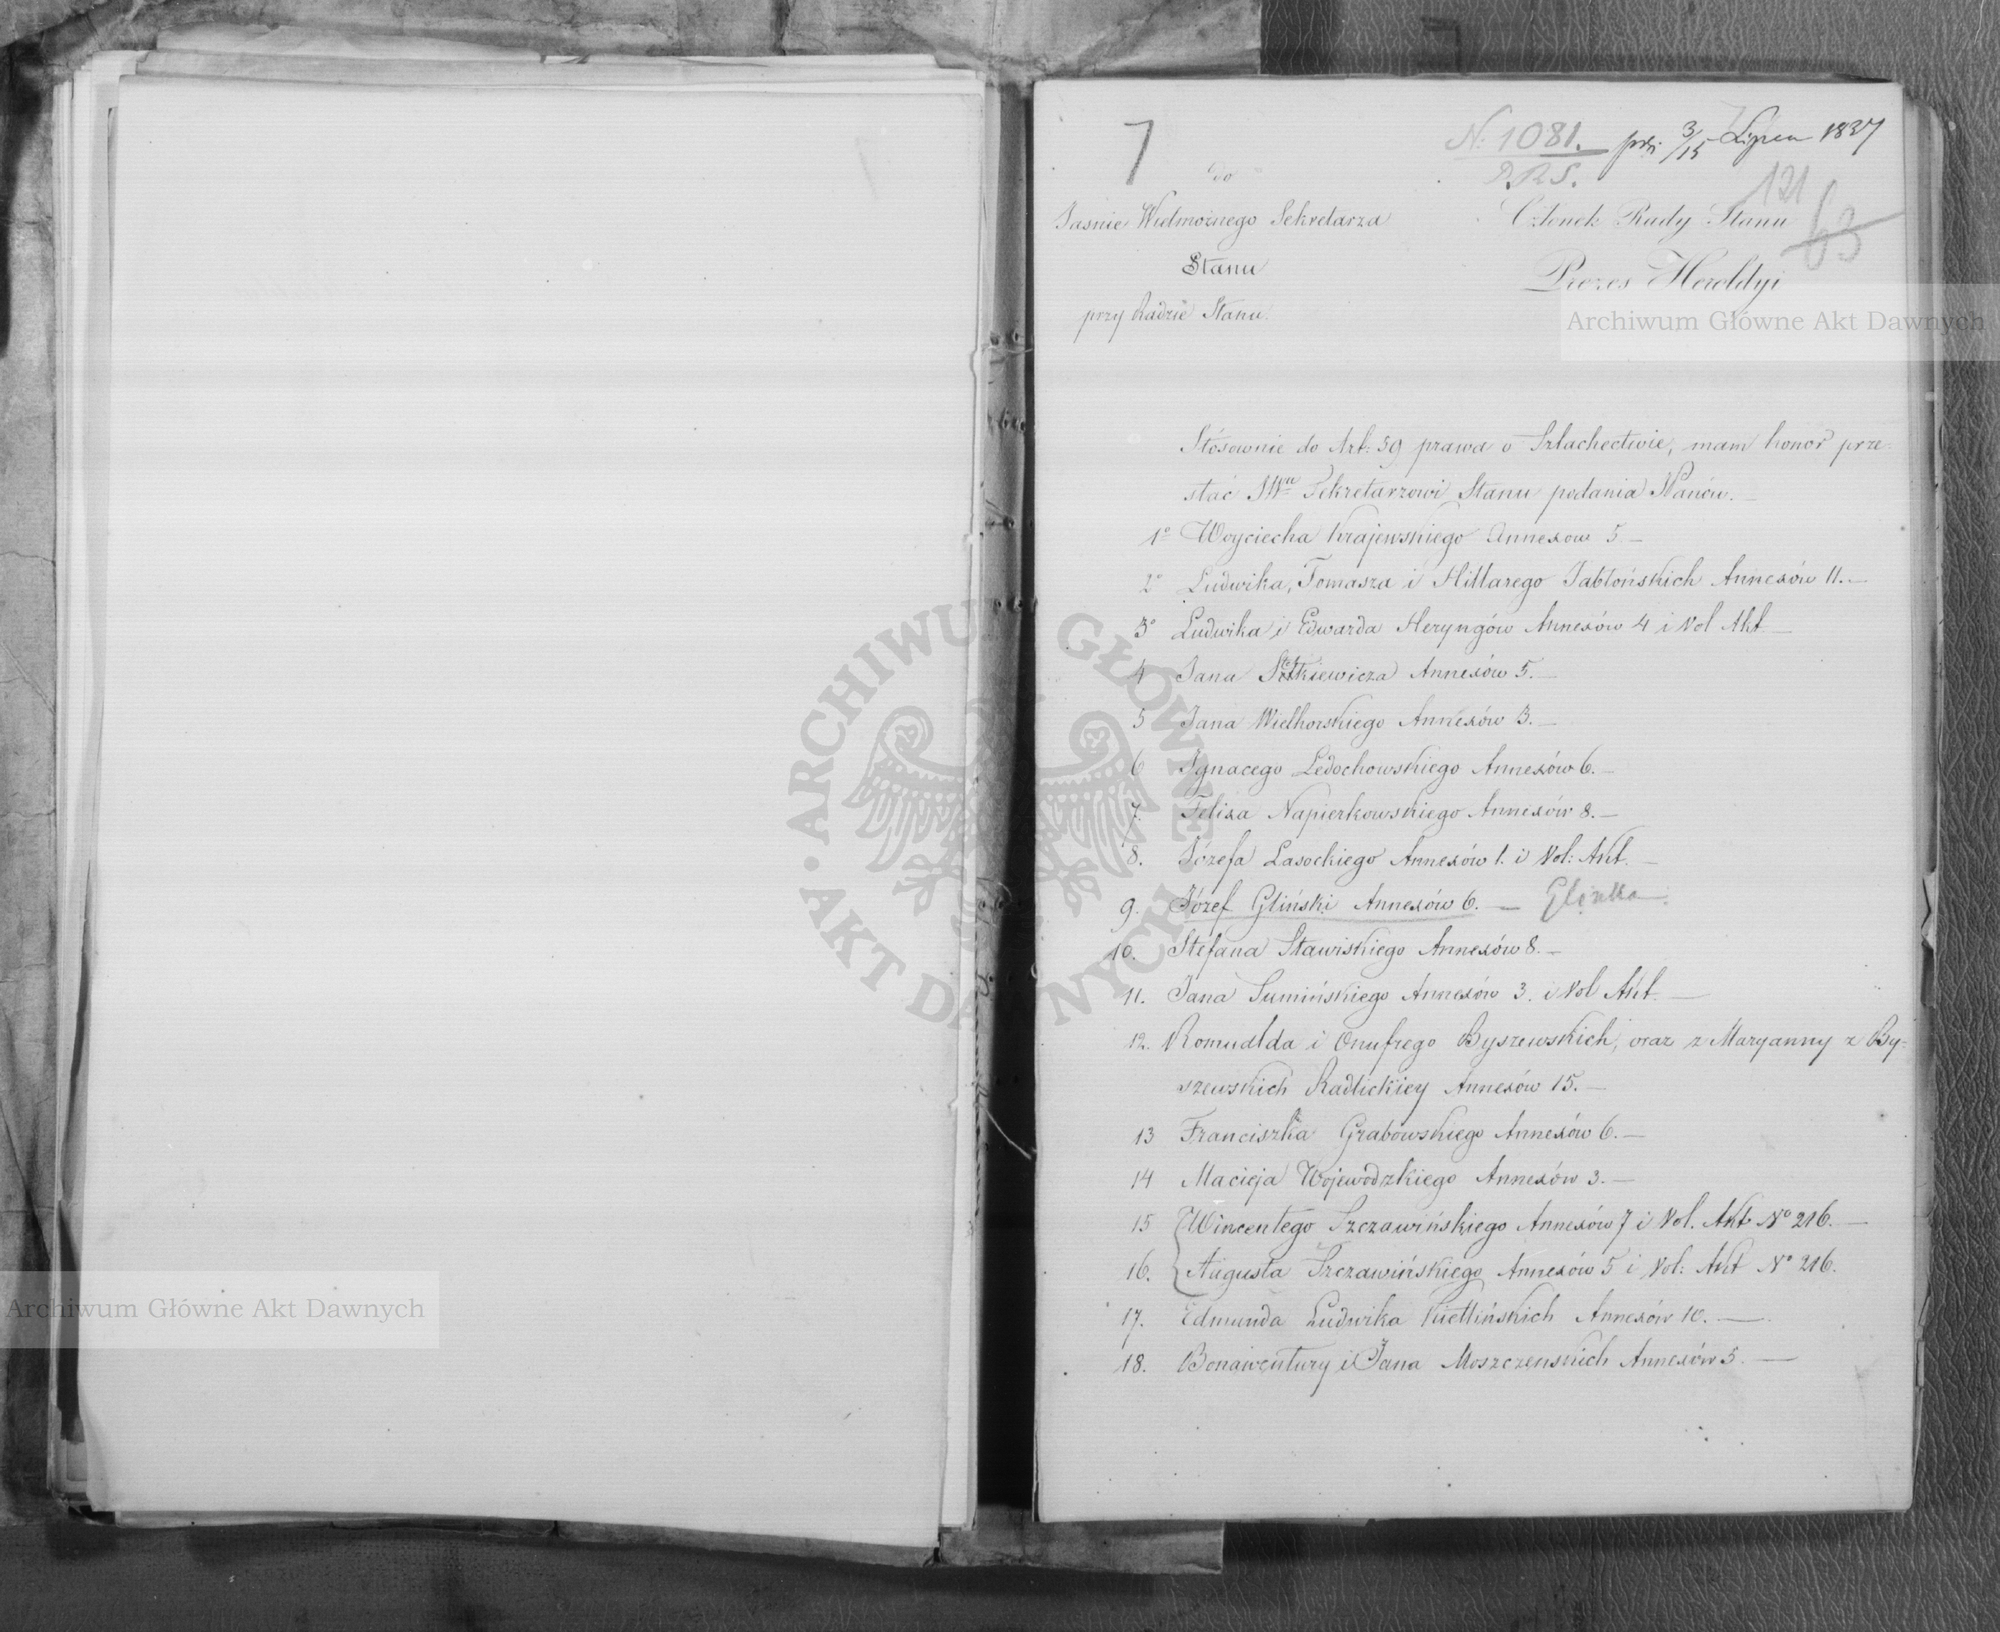 7
N: 1081.
D.R.S.
pdj 3/15 Lipca 1837
121
63
do
Jaśnie Wielmożnego Sekretarza
Stanu
przy Radzie Stanu.
Członek Rady Stanu
Prezes Heroldyi
Archiwum Główne Akt Dawnych
Stósownie do Art: 59 prawa o Szlachectwie, mam honor prze-
słać JWu Sekretarzowi Stanu podania Panów. —
1o Woyciecha Krajewskiego Annexow 5 —
2o Ludwika, Tomasza i Hillarego Jabłońskich Annexów 11. —
3o Ludwika i Edwarda Heryngów Annexów 4 i Vol Akt —
4 Jana Annexów 5. —
5 Jana Wielhorskiego Annexów 3. —
6 Ignacego Ledochowskiego Annexów 6. —
7. Felixa Napierkowskiego Annexów 8. —
8. Józefa Lasockiego Annexów 1. i Vol: Akt. —
9. Józef Gliński Annexów 6. — Glinka
10. Stefana Stawiskiego Annexów 8. —
11. Jana Sumińskiego Annexów 3. i Vol Akt. —
12. Romualda i Onufrego Byszewskich, oraz z Maryanny z By-
szewskich Radlickiey Annexów 15. —
13 Franciszka Grabowskiego Annexów 6. —
14 Macieja Wojewódzkiego Annexów 3. —
15 Wincentego Szczawińskiego Annexów 7 i Vol. Akt No 216. —
16. Augusta Szczawińskiego Annexów 5 i Vol: Akt No 216.
17. Edmunda Ludwika Kietlińskich Annexów 10. —
18. Bonawentury i Jana Moszczenskich Annexów 5. —
Archiwum Główne Akt Dawnych
ARCHIWUM GŁÓWNE AKT DAWNYCH